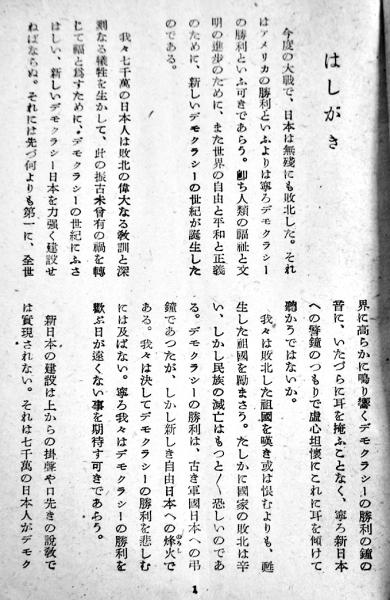 はしがき
今度の大戰で、日本は無殘にも敗北した。それ
はアメリカの勝利といふよりは寧ろデモクラシー
の勝利といふ可きであらう。卽ち人類の福祉と文
明の進歩のために、また世界の自由と平和と正義
のために、新しいデモクラシーの世紀が誕生した
のである。
我々七千萬の日本人は敗北の偉大なる敎訓と深
刻なる犧牲を生かして、此の振古未曾有の禍を轉
じて福と爲すために、デモクラシーの世紀にふさ
はしい、新しいデモクラシー日本を力强く建設せ
ねばならぬ。それには先づ何よりも第一に、全世
界に高らかに鳴り響くデモクラシーの勝利の鐘の
音に、いたづらに耳を掩ふことなく、寧ろ新日本
への警鐘のつもりで虛心坦懷にこれに耳を傾けて
聽かうではないか。
我々は敗北した祖國を嘆き或は恨むよりも、甦
生した祖國を勵まさう。たしかに國家の敗北は辛
い、しかし民族の滅亡はもつと〳〵恐しいのであ
る。デモクラシーの勝利は、古き軍國日本への弔
鐘であつたが、しかし新しき自由日本への烽火で
のろし
ある。我々は決してデモクラシーの勝利を悲しむ
には及ばない。寧ろ我々はデモクラシーの勝利を
歡ぶ日が遠くない事を期待す可きであらう。
新日本の建設は上からの掛聲や口先きの說敎で
は實現されない。それは七千萬の日本人がデモク
1